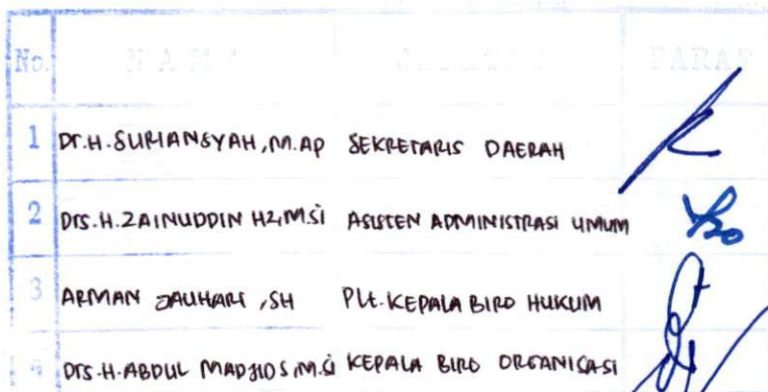 No. NAMA JABATAN PARAF
1 Dr.H.SURIANSYAH,M.AP SEKRETARIS DAERAH
2 Drs.H.ZAINUDDIN HZ,M.Si ASISTEN ADMINISTRASI UMUM
3 ARMAN JAUHARI ,SH Plt.KEPALA BIRO HUKUM
4 Drs.H.ABDUL MADJID S,M.Si KEPALA BIRO ORGANISASI